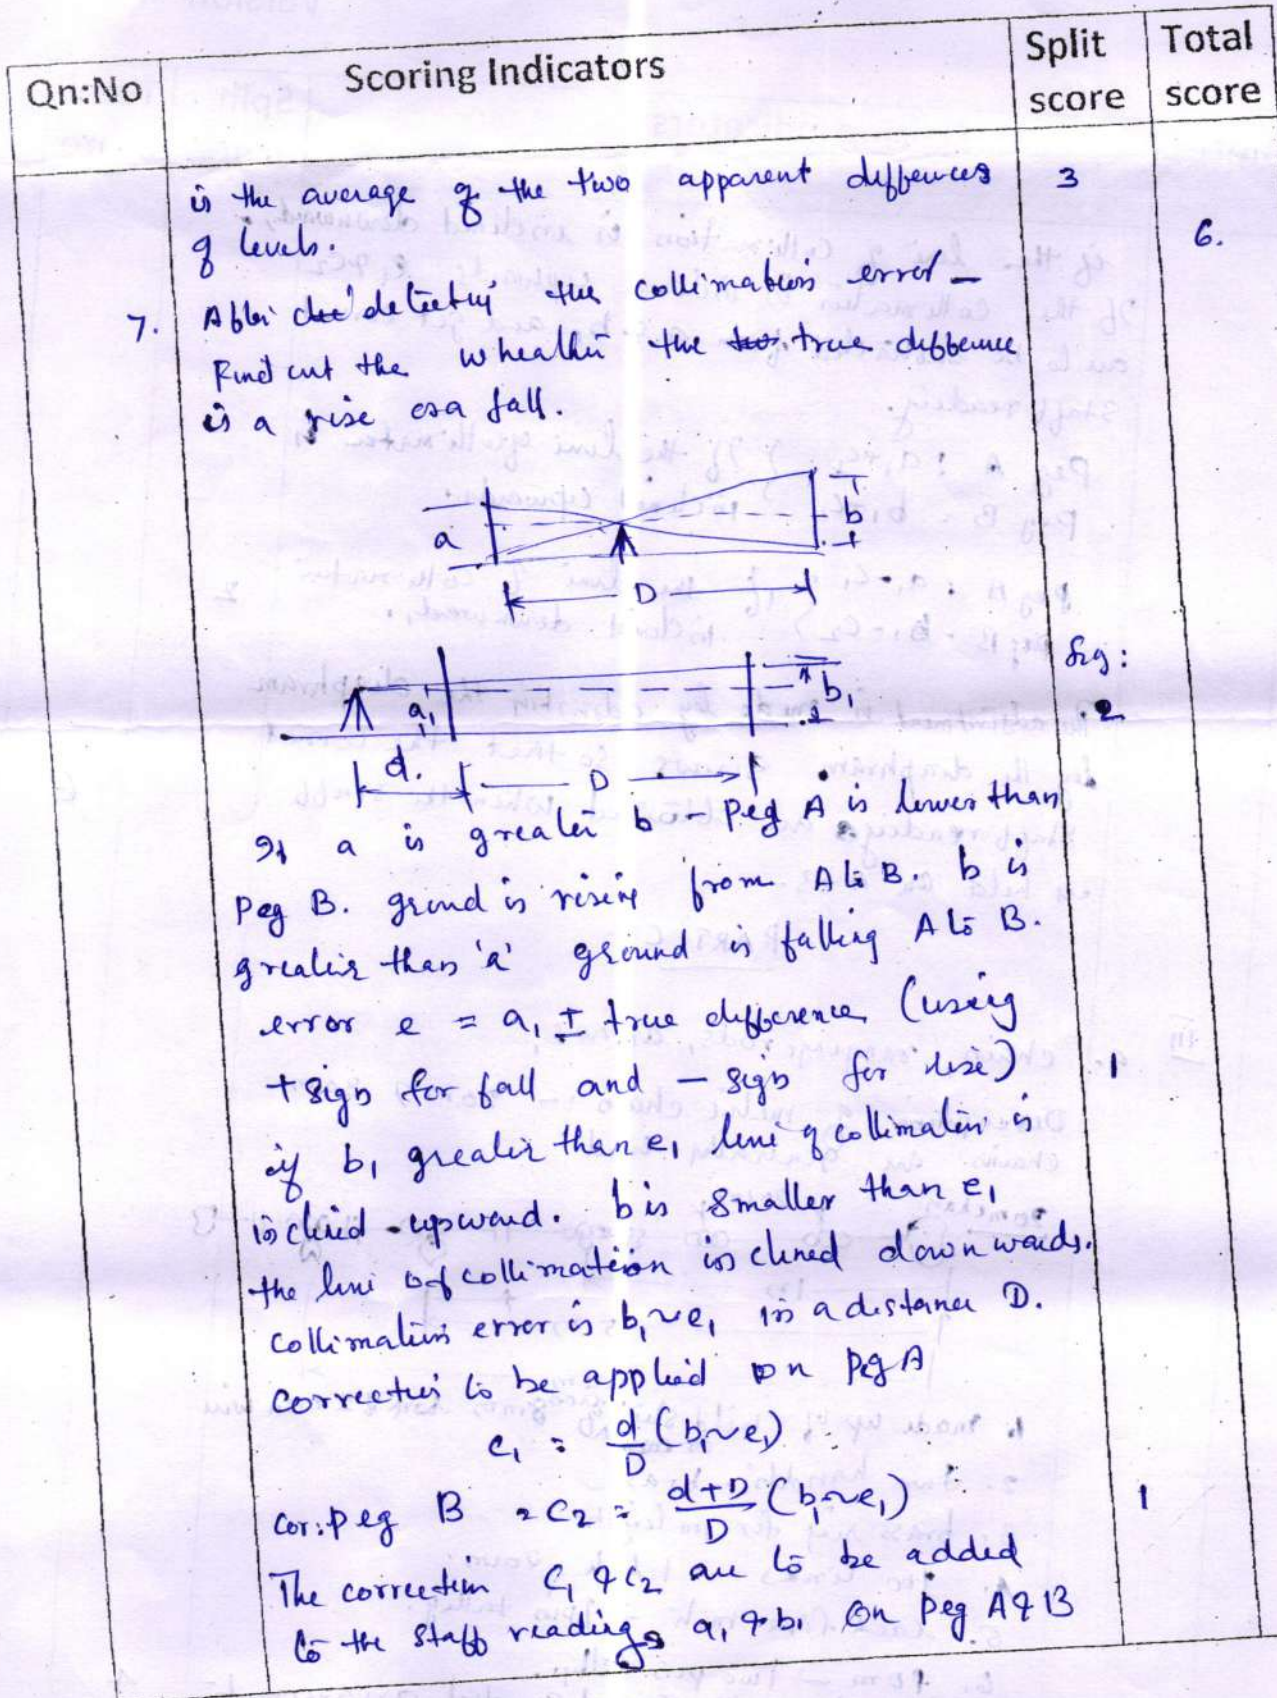 Qn:No Scoring Indicators Split score Total score
is the average of the two apparent diffences 3
of levels. 6.
7. After detecting the collimation error –
Find out the wheather the true difference
is a rise or a fall.
a b
D
a₁ b₁ fig: 2
d. D
If a is greater b – Peg A is lower than
Peg B. ground is rising from A to B. b is
greater than 'a' ground is falling A to B.
error e = a₁ ± true difference (using
+ sign for fall and – sign for rise) 1
if b₁ greater than e₁ line of collimation is
inclined upward. b is smaller than e₁
the line of collimation inclined downwards.
Collimation error is b₁~e₁ in a distance D.
correction to be applied on Peg A
c₁ = d/D (b₁~e₁)
Cor: peg B = C₂ = d+D/D (b₁~e₁) 1
The correction C₁ & C₂ are to be added
to the staff readings a₁ & b₁ on Peg A & B